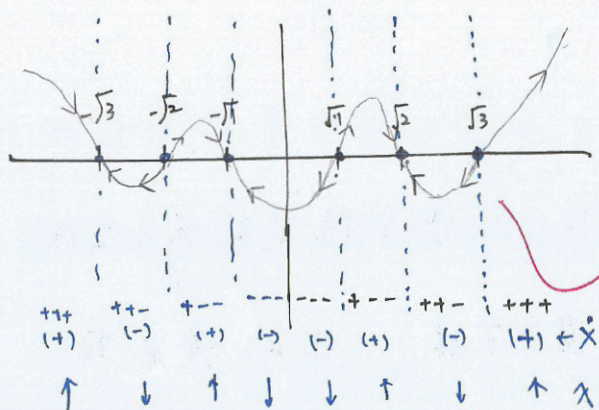 -√3 -√2 -√1 √1 √2 √3
+++ ++- +-- --- --- +-- ++- +++
(+) (-) (+) (-) (-) (+) (-) (+) ← ẋ
↑ ↓ ↑ ↓ ↓ ↑ ↓ ↑ x